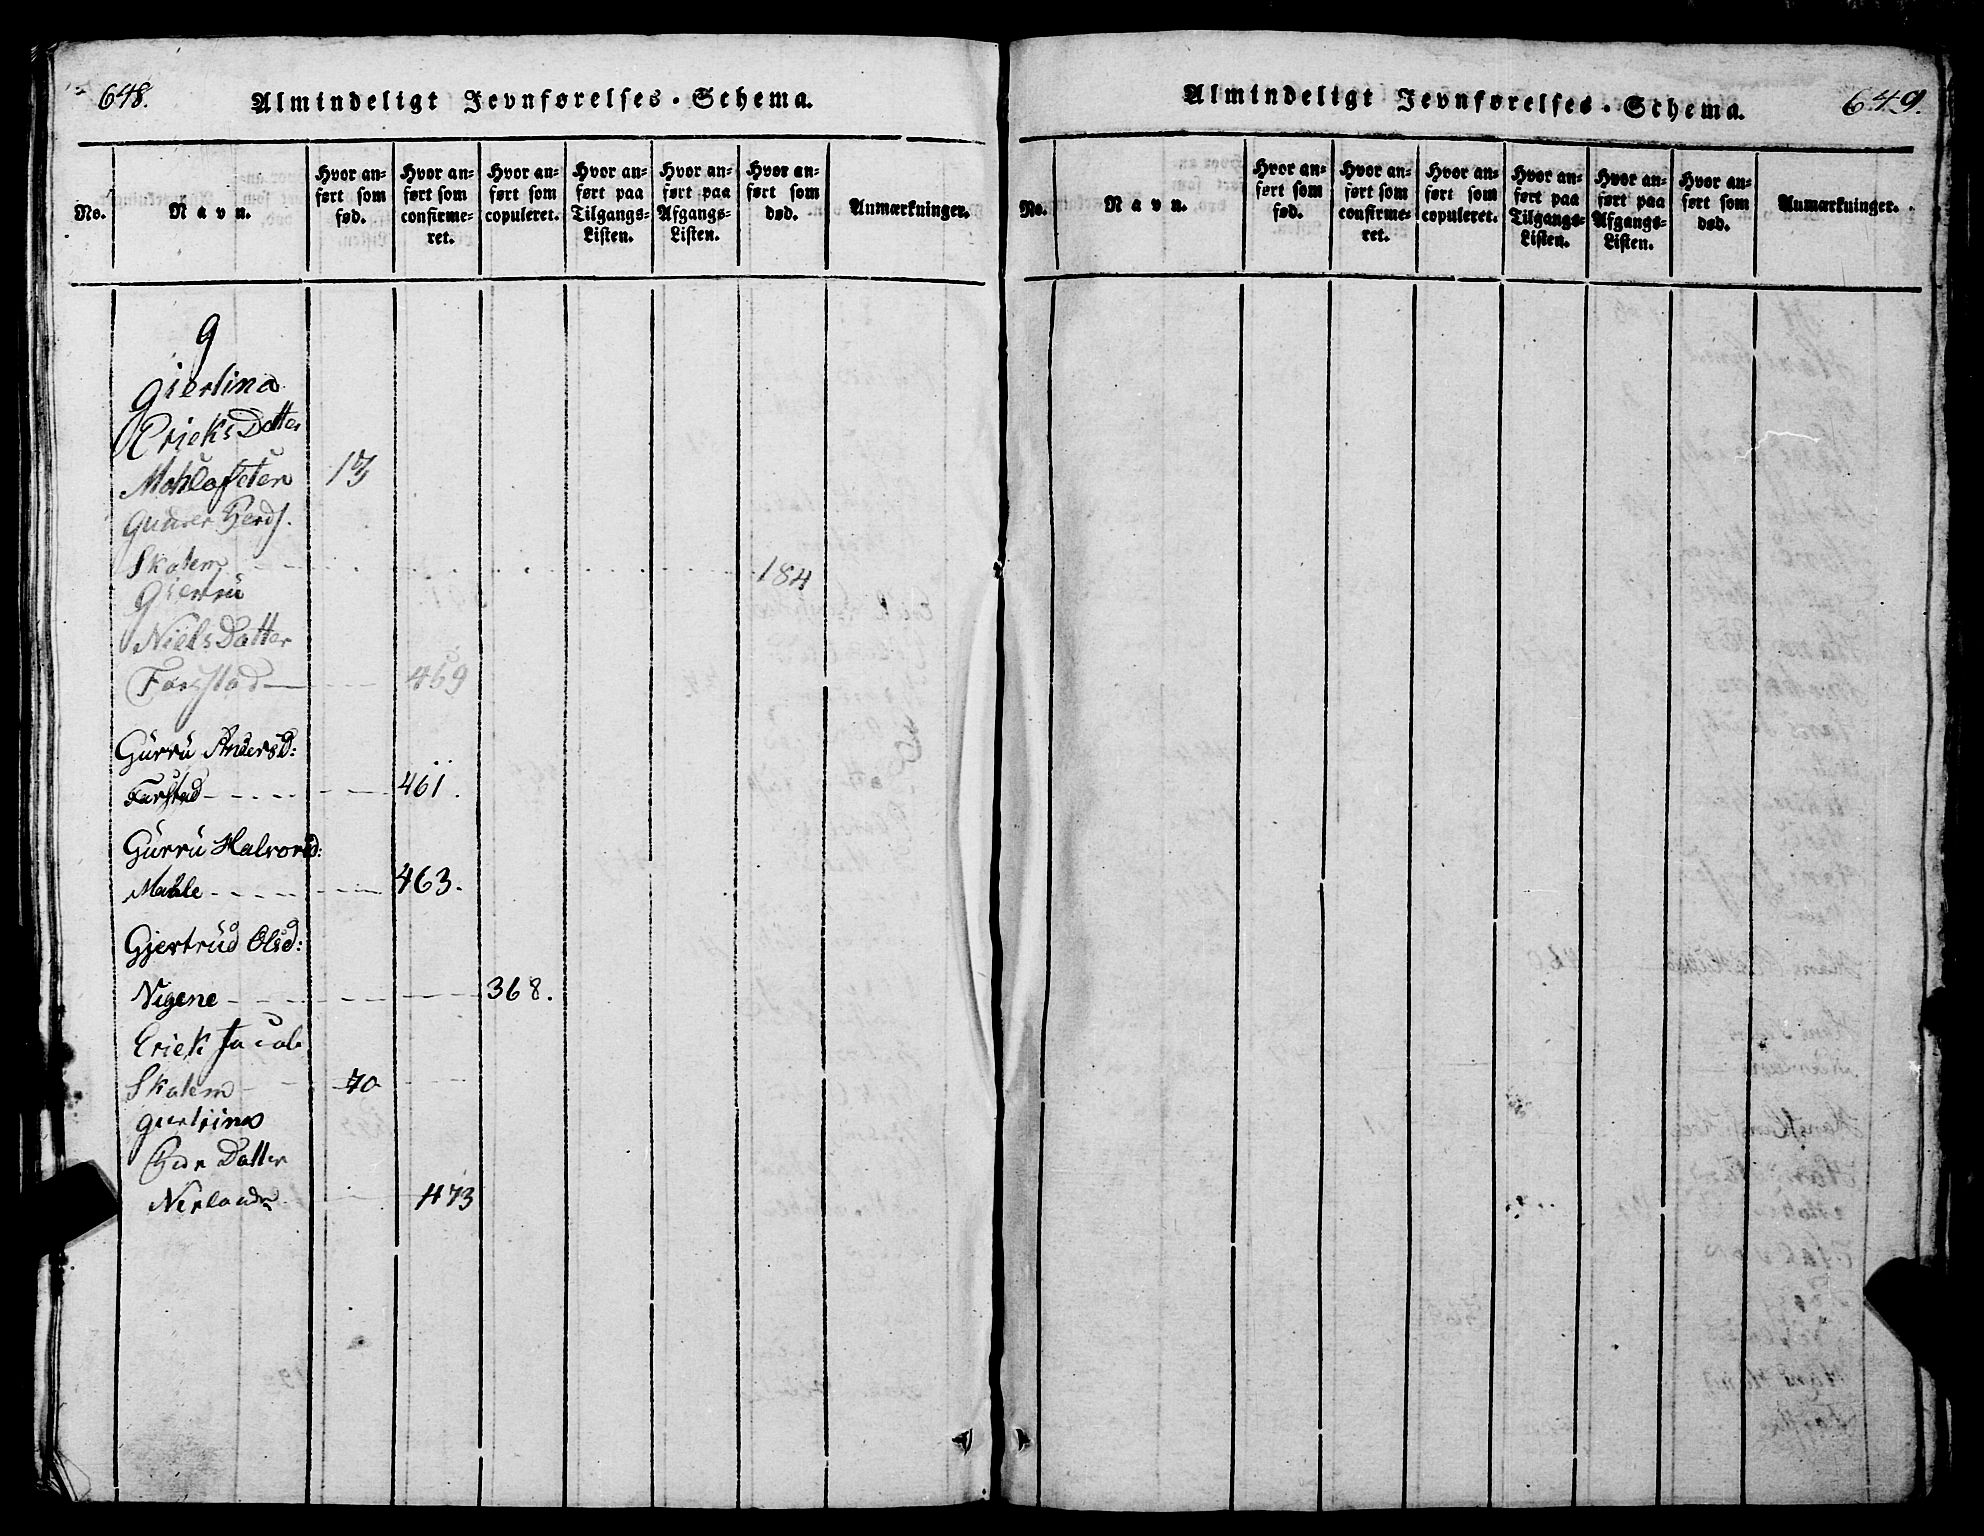 648.
Almindeligt Jevnførelses-Schema.
No.
Navn.
Hvor an-
ført som
fød.
Hvor an-
ført som
confirme-
ret.
Hvor an-
ført som
copuleret.
Hvor an-
ført paa
Tilgangs-
Listen.
Hvor an-
ført paa
Afgangs-
Listen.
Hvor an-
ført som
død.
Anmærkninger.
G
Giertina
Ericks Datter
17
Gunner
Skalem 184
Niels Datter
Farstad 469
Gurru Andersd:
Farstad 461.
Gurru Halvorsd:
Mahle 463.
Gjertrud Olsd:
Nigene 368.
Erick Jacob
Skalem 70
Datter
Nerland 473
Almindeligt Jevnførelses-Schema.
649.
No.
Navn.
Hvor an-
ført som
fød.
Hvor an-
ført som
confirme-
ret.
Hvor an-
ført som
copuleret.
Hvor an-
ført paa
Tilgangs-
Listen.
Hvor an-
ført paa
Afgangs-
Listen.
Hvor an-
ført som
død.
Anmærkninger.